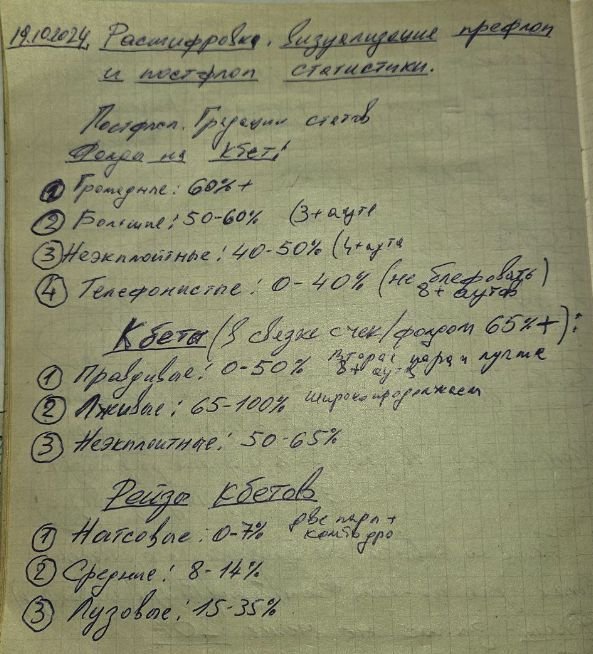 19.10.2024. Расшифровка, визуализация префлоп
и постфлоп статистики.
Постфлоп. Градации статов
Фолда на Кбет:
① Громадные: 60%+
② Большие: 50-60% (3+аута
③ Неэкплойтные: 40-50% (4+аута
④ Телефонистые: 0-40% (не блефовать)
8+ аутов
Кбеты (в связке с чек/фолдом 65%+):
① Правдивые: 0-50% вторая пара и лучше
8+ аут
② Лживые: 65-100% широко продолжаем
③ Неэкплоитные: 50-65%
Рейзы Кбетов
① Натсовые: 0-7% две пары +
комбодро
② Средние: 8-14%
③ Лузовые: 15-35%